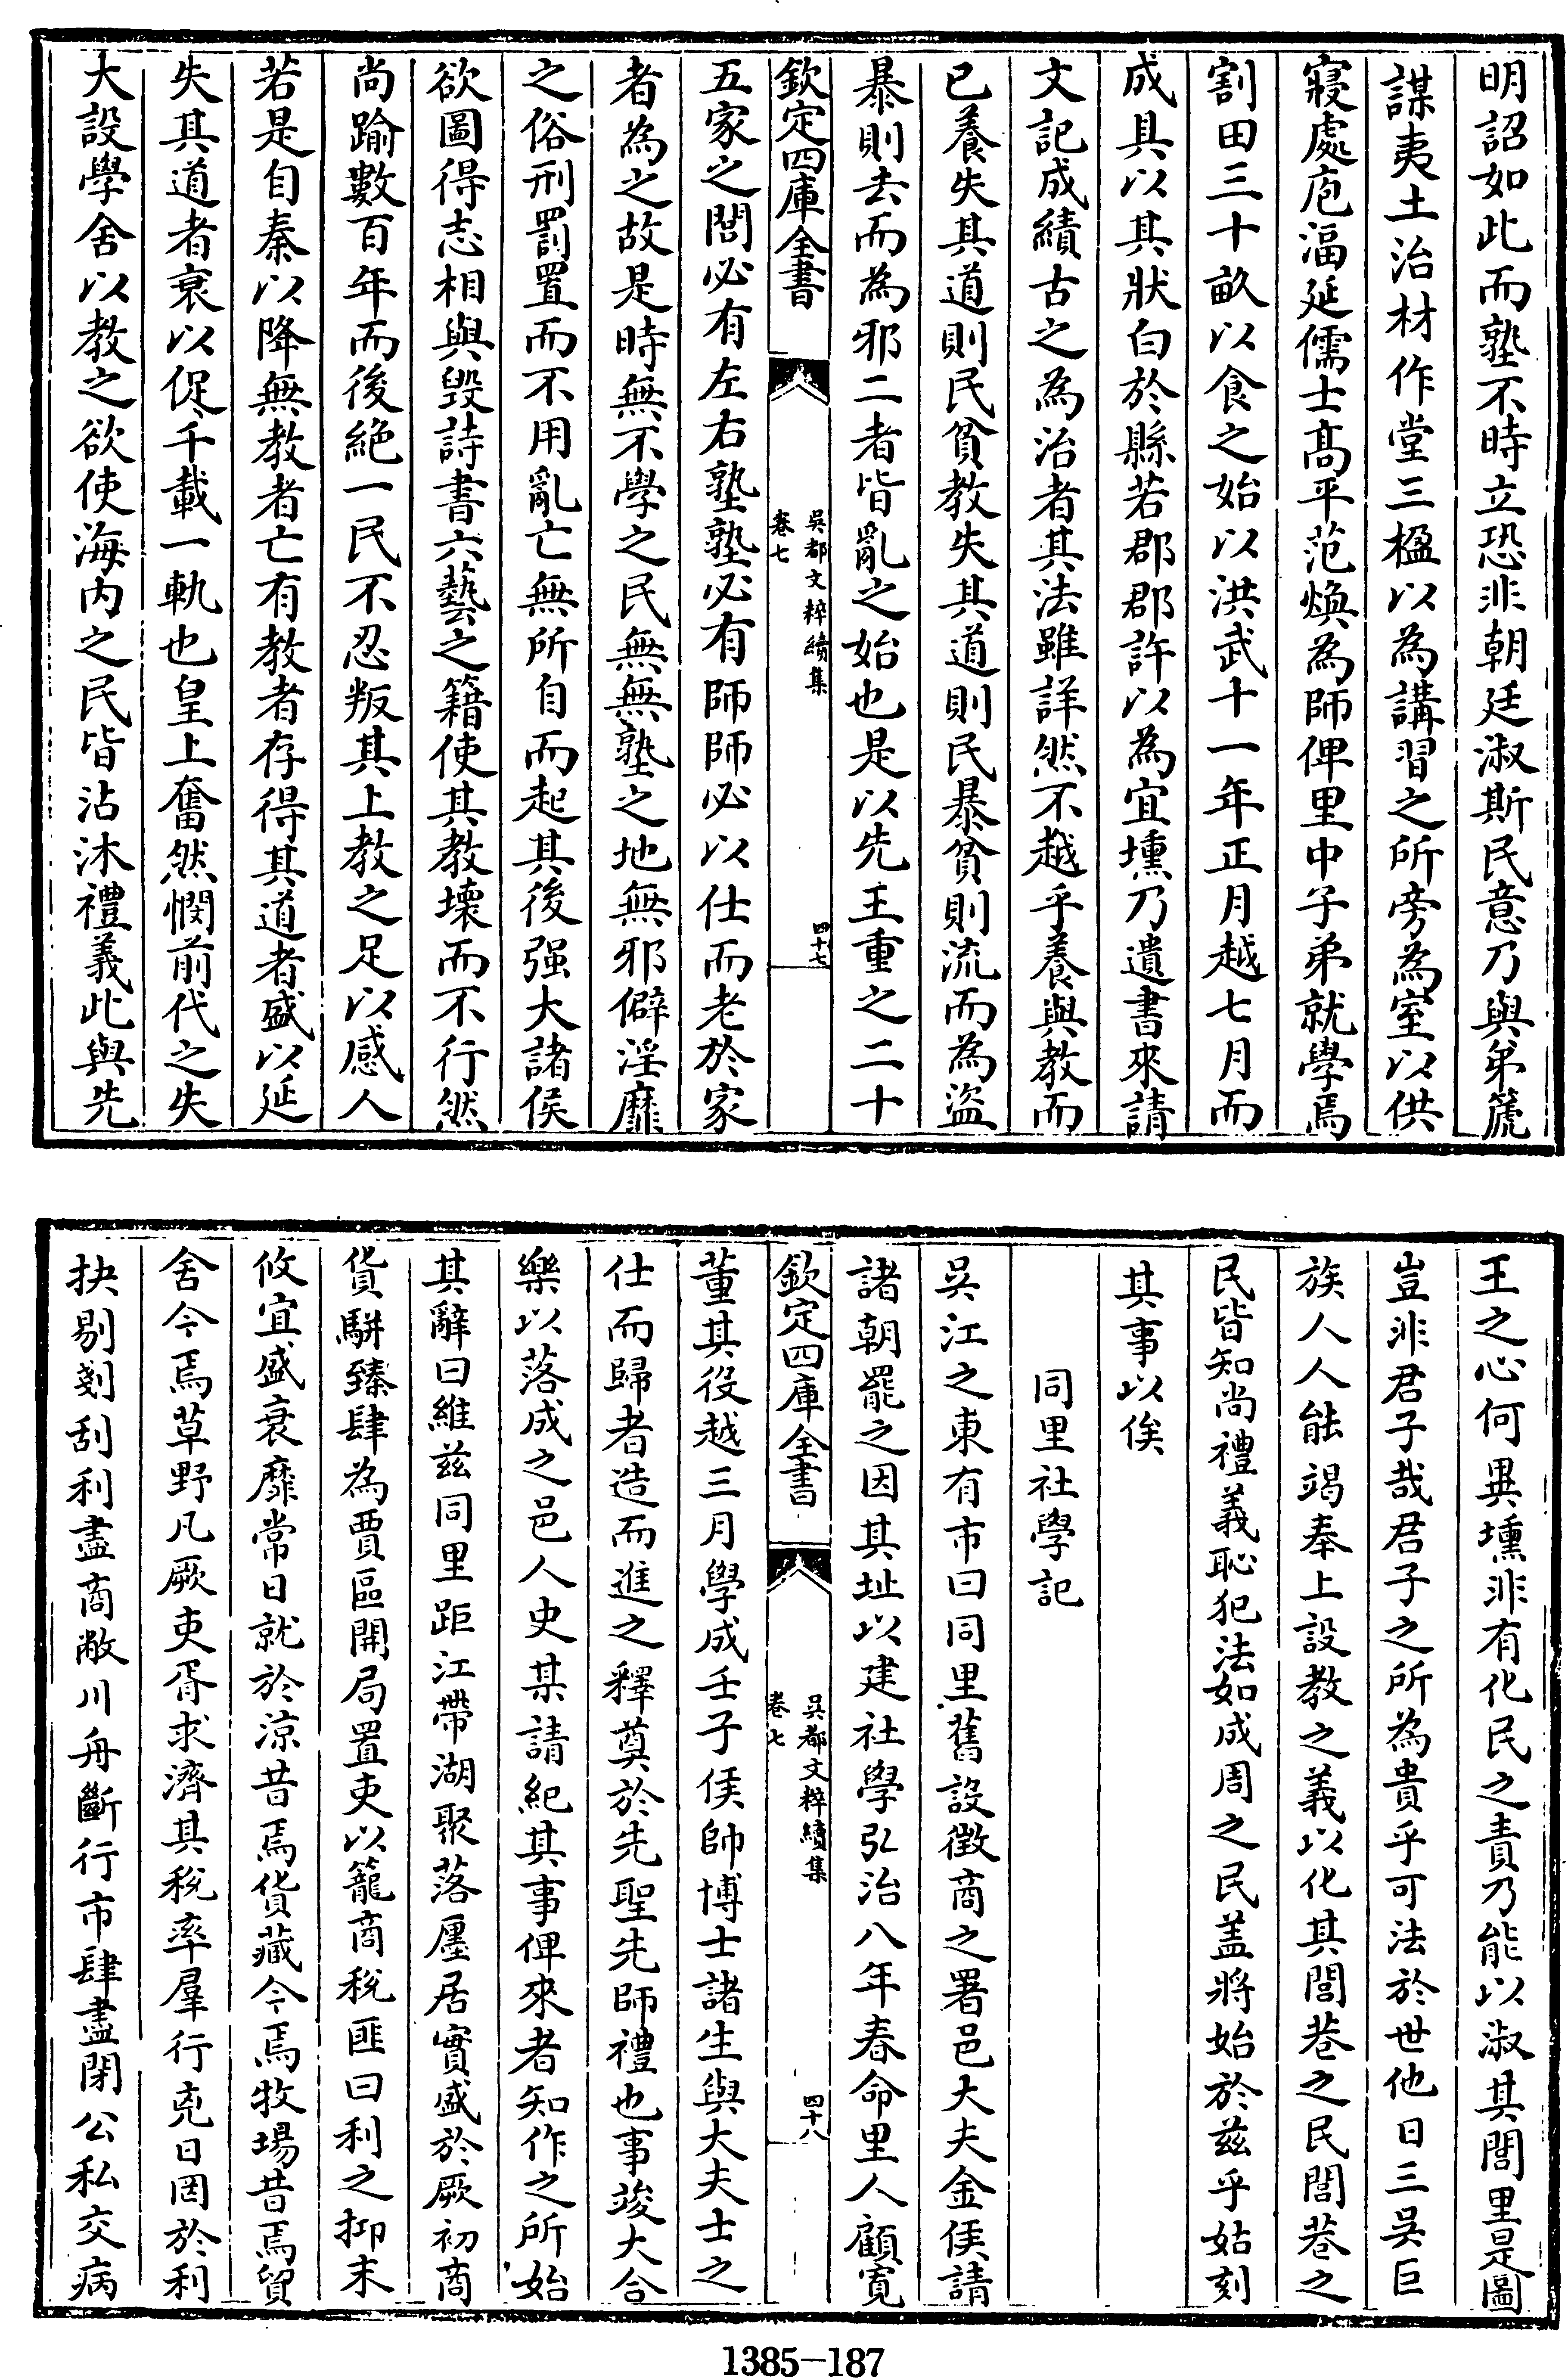 明詔如此而塾不時立恐非朝廷淑斯民意乃與弟箎
謀夷土治材作堂三楹以為講習之所旁為室以供
寢處庖湢延儒士髙平范煥為師俾里中子弟就學焉
割田三十畝以食之始以洪武十一年正月越七月而
成具以其狀白於縣若郡郡許以為宜壎乃遺書來請
文記成績古之為治者其法雖詳然不越乎養與教而
已養失其道則民貧教失其道則民暴貧則流而為盜
暴則去而為邪二者皆亂之始也是以先王重之二十
欽定四庫全書
吳都文粹續集
卷七
四十七
五家之閭必有左右塾塾必有師師必以仕而老於家
者為之故是時無不學之民無無塾之地無邪僻淫靡
之俗刑罰置而不用亂亡無所自而起其後强大諸侯
欲圖得志相與毀詩書六藝之籍使其教壞而不行然
尚踰數百年而後絶一民不忍叛其上教之足以感人
若是自秦以降無教者亡有教者存得其道者盛以延
失其道者衰以促千載一軌也皇上奮然憫前代之失
大設學舍以教之欲使海内之民皆沾沐禮義此與先
王之心何異壎非有化民之責乃能以淑其閭里是圖
豈非君子哉君子之所為貴乎可法於世他日三吳巨
族人人能竭奉上設教之義以化其閭巷之民閭巷之
民皆知尚禮義恥犯法如成周之民盖將始於兹乎姑刻
其事以俟
同里社學記
吳江之東有市曰同里舊設徵商之署邑大夫金侯請
諸朝罷之因其址以建社學弘治八年春命里人顧寛
欽定四庫全書
吳都文粹續集
卷七
四十八
董其役越三月學成壬子侯帥博士諸生與大夫士之
仕而歸者造而進之釋奠於先聖先師禮也事竣大合
樂以落成之邑人史某請紀其事俾來者知作之所始
其辭曰維兹同里距江帶湖聚落廛居實盛於厥初商
貨駢臻肆為賈區開局置吏以籠商稅匪曰利之抑末
攸宜盛衰靡常日就於涼昔焉貨藏今焉牧場昔焉貿
舍今焉草野凡厥吏胥求濟其稅率羣行克日罔於利
抉剔剗刮利盡商敝川舟斷行市肆盡閉公私交病
1385-187